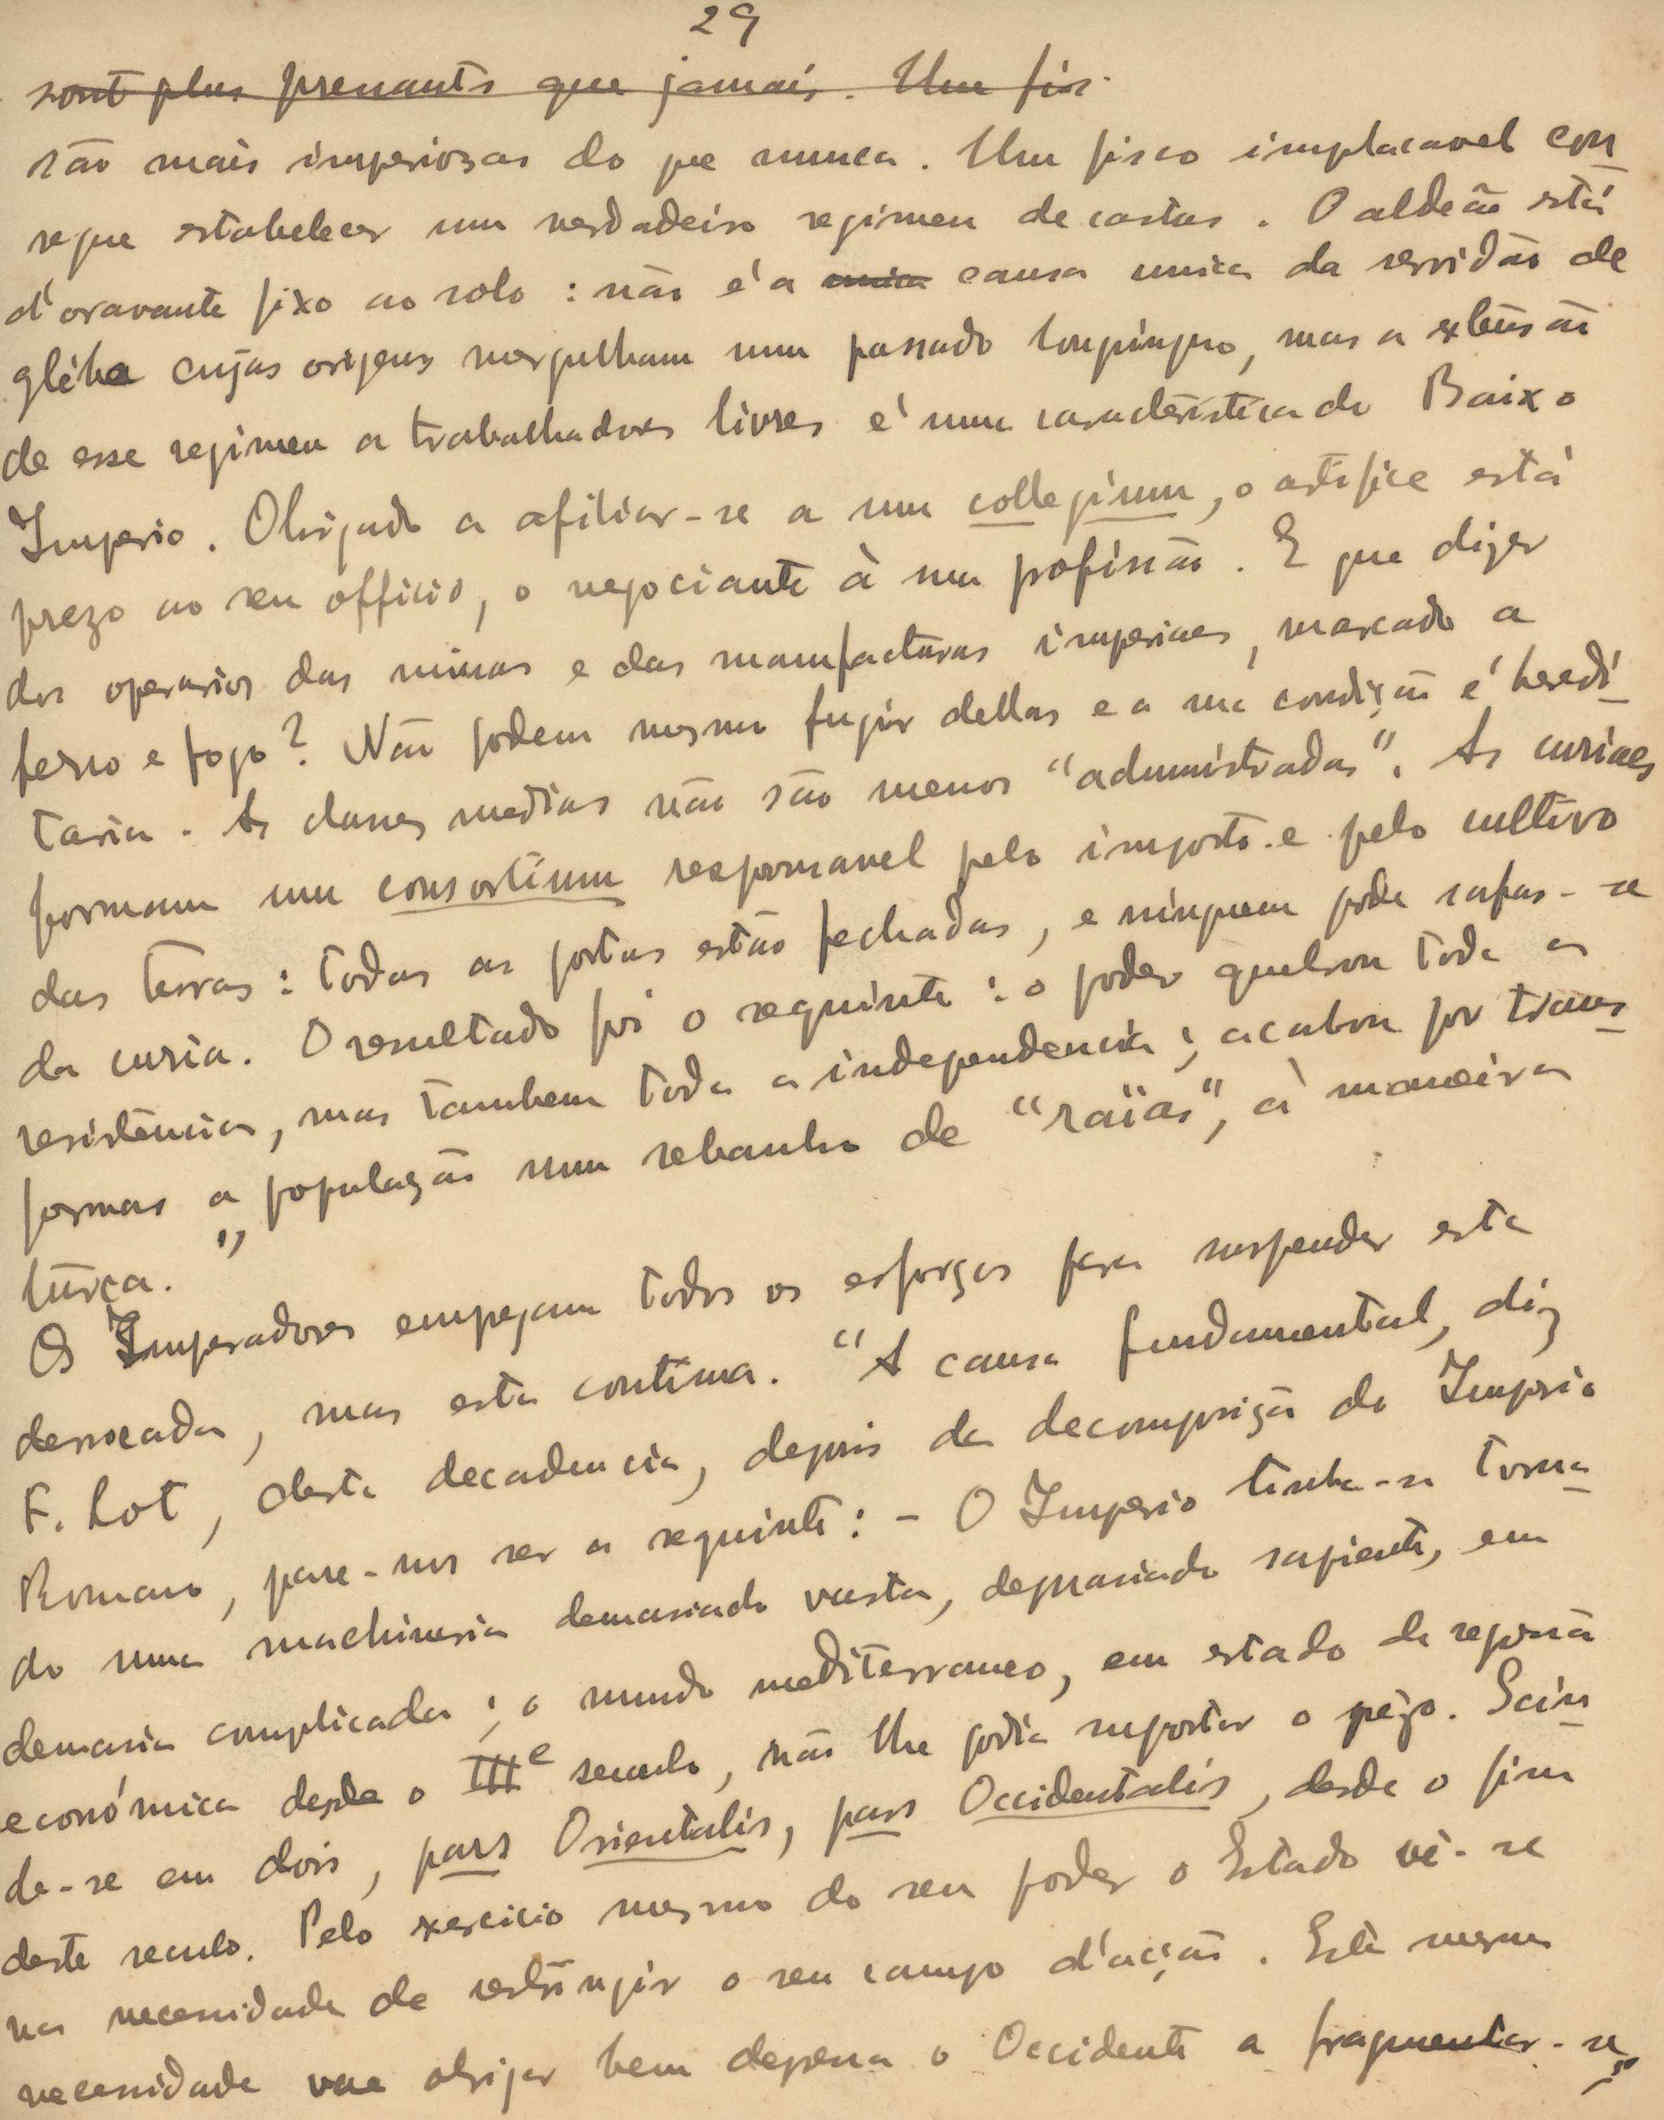 29
sont plus prenants que jamais. Um fis-
são mais imperiozas do que nunca. Um fisco implacavel con
segue estabelecer um verdadeiro regimen de castas. O aldeão está
d'oravante fixo ao solo: não é a unica causa unica da servidão de
gléba cujas origens mergulham num passado longinquo, mas a extensão
de esse regimen a trabalhadores livres é uma caracteristica do Baixo
Imperio. Obrigado a afiliar-se a um collegium, o artifice está
prezo ao seu officio, o negociante à sua profissão. E que dizer
dos operarios das minas e das manufacturas imperiaes, marcado a
ferro e fogo? Não podem mesmo fugir dellas e a sua condição é heredi
taria. As classes medias não são menos "administradas". As curiaes
formam um consortium responsavel pelo imposto e pelo cultivo
das terras: todas as portas estão fechadas, e ninguem pode safar-se
da curia. O resultado foi o seguinte: o poder quebrou toda a
resistencia, mas tambem toda a independencia; acabou por trans
formar a população num rebanho de "raïas", à maneira
turca."
Os Imperadores empregam todos os esforços para suspender esta
derrocada, mas esta continua. "A causa fundamental, diz
F. Lot, desta decadencia, depois da decomposição do Imperio
Romano, parece-nos ser a seguinte: - O Imperio tinha-se torna
do uma machineria demasiado vasta, demasiado sapiente, em
demasia complicada; o mundo mediterraneo, em estado de regressão
económica desde o IIIe seculo, não lhe podia suportar o pêzo. Scin
de-se em dois, pars Orientalis, pars Occidentalis, desde o fim
deste seculo. Pelo exercicio mesmo do seu poder o Estado vê-se
na necessidade de restringir o seu campo d'acção. Esta mesma
necessidade vae obrigar bem depressa o Occidente a fragmentar-se,